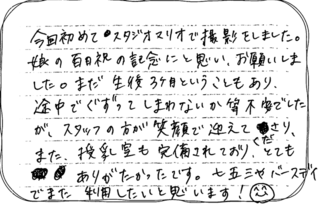 今回初めてスタジオマリオで撮影をしました。
娘の百日祝の記念にと思い、お願いしま
した。まだ生後3ヶ月ということもあり、
途中でぐずってしまわないか等不安でした
が、スタッフの方が笑顔で迎えてくださり、
また、授乳室も完備されており、とても
ありがたかったです。七五三やバースデイ
でまた利用したいと思います!